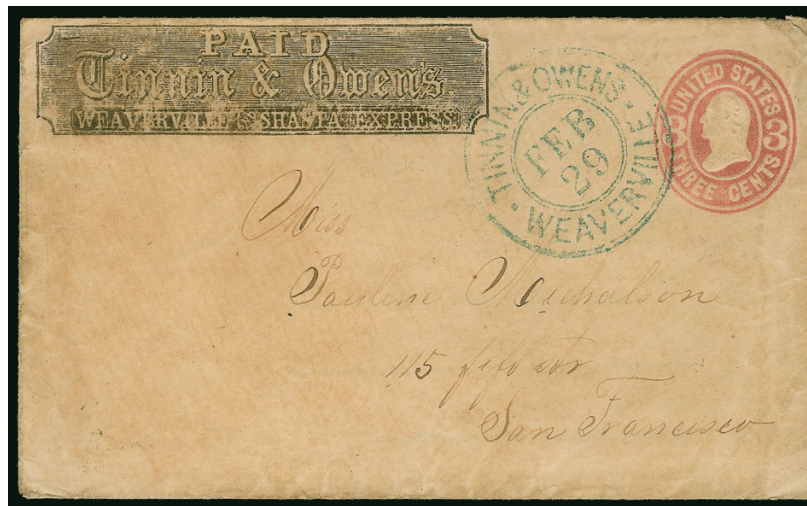 PAID
Tinnin & Owen's
WEAVERVILLE & SHASTA EXPRESS
TINNIN & OWENS
WEAVERVILLE
FEB
29
UNITED STATES
3 3
THREE CENTS
Miss
Pauline Michalson
115
San Francisco